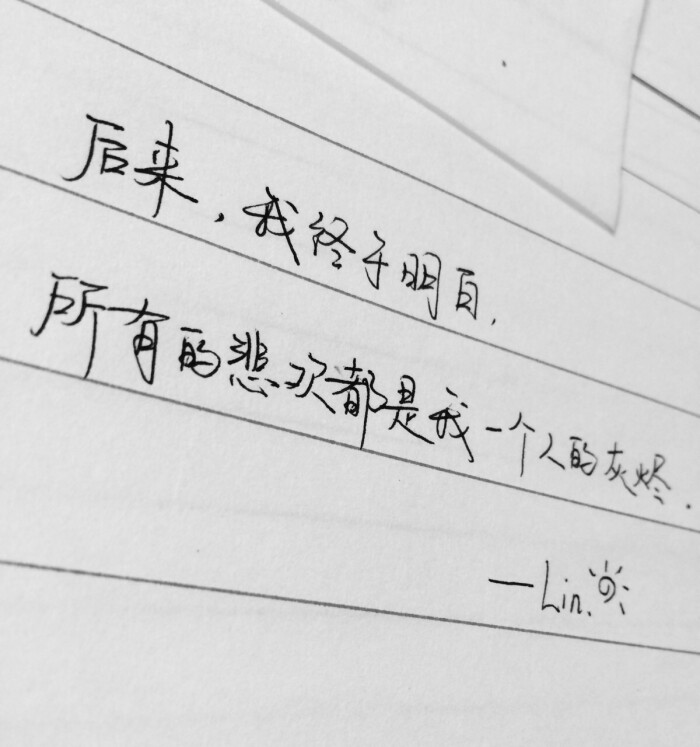 后来，我终于明白，
所有的悲欢都是我一个人的灰烬．
—Lin.